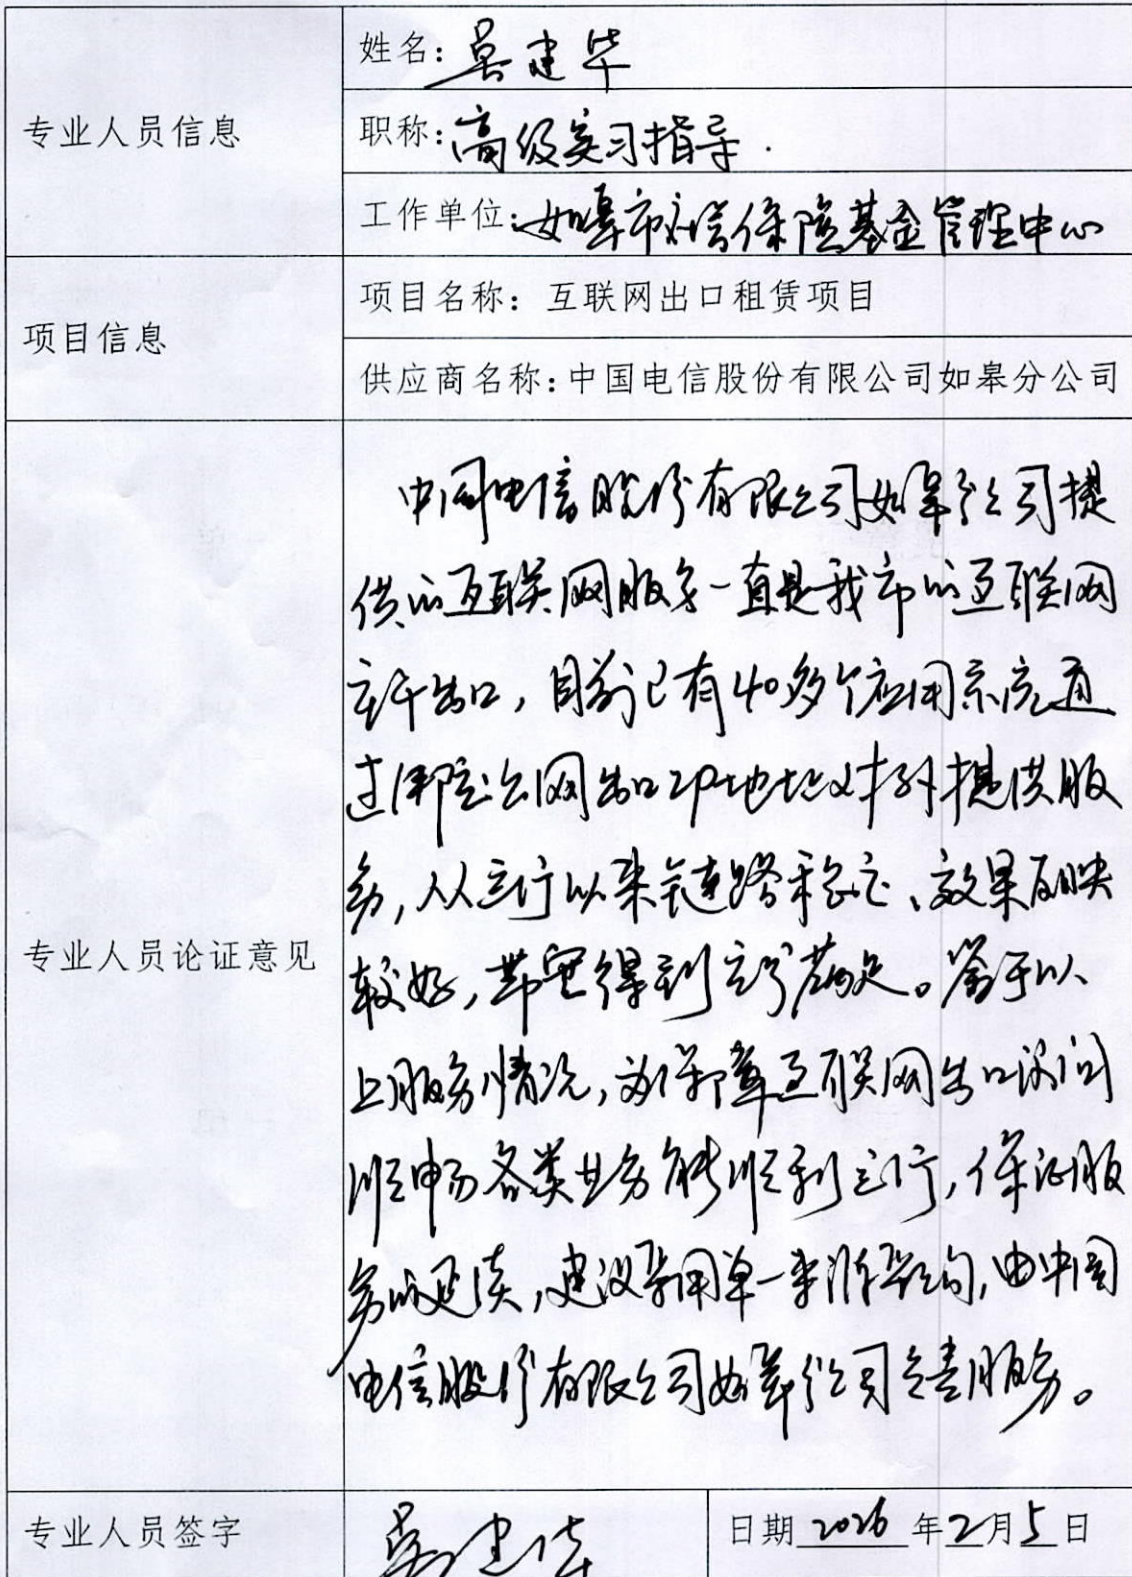 专业人员信息
姓名:吴建华
职称:高级实习指导.
工作单位:如皋市社会保险基金管理中心
项目信息
项目名称: 互联网出口租赁项目
供应商名称:中国电信股份有限公司如皋分公司
专业人员论证意见
中国电信股份有限公司如皋分公司提
供的互联网服务一直是我市的互联网
主干出口,目前已有40多个应用系统通
过出口IP地址对外提供服
务,从运行以来链路稳定、效果反映
较好,带宽得到充分满足。鉴于以
上服务情况,为保障互联网出口访问
顺畅各类业务能顺利运行,保证服
务的延续,建议采用单一来源采购,由中国
电信股份有限公司如皋分公司负责服务。
专业人员签字
吴建华
日期 2026 年2月5日